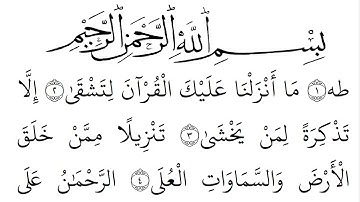 بِسْمِ اللَّهِ الرَّحْمَٰنِ الرَّحِيمِ
طه ۝١ مَا أَنْزَلْنَا عَلَيْكَ الْقُرْآنَ لِتَشْقَىٰ ۝٢ إِلَّا
تَذْكِرَةً لِمَنْ يَخْشَىٰ ۝٣ تَنْزِيلًا مِمَّنْ خَلَقَ
الْأَرْضَ وَالسَّمَاوَاتِ الْعُلَى ۝٤ الرَّحْمَٰنُ عَلَى